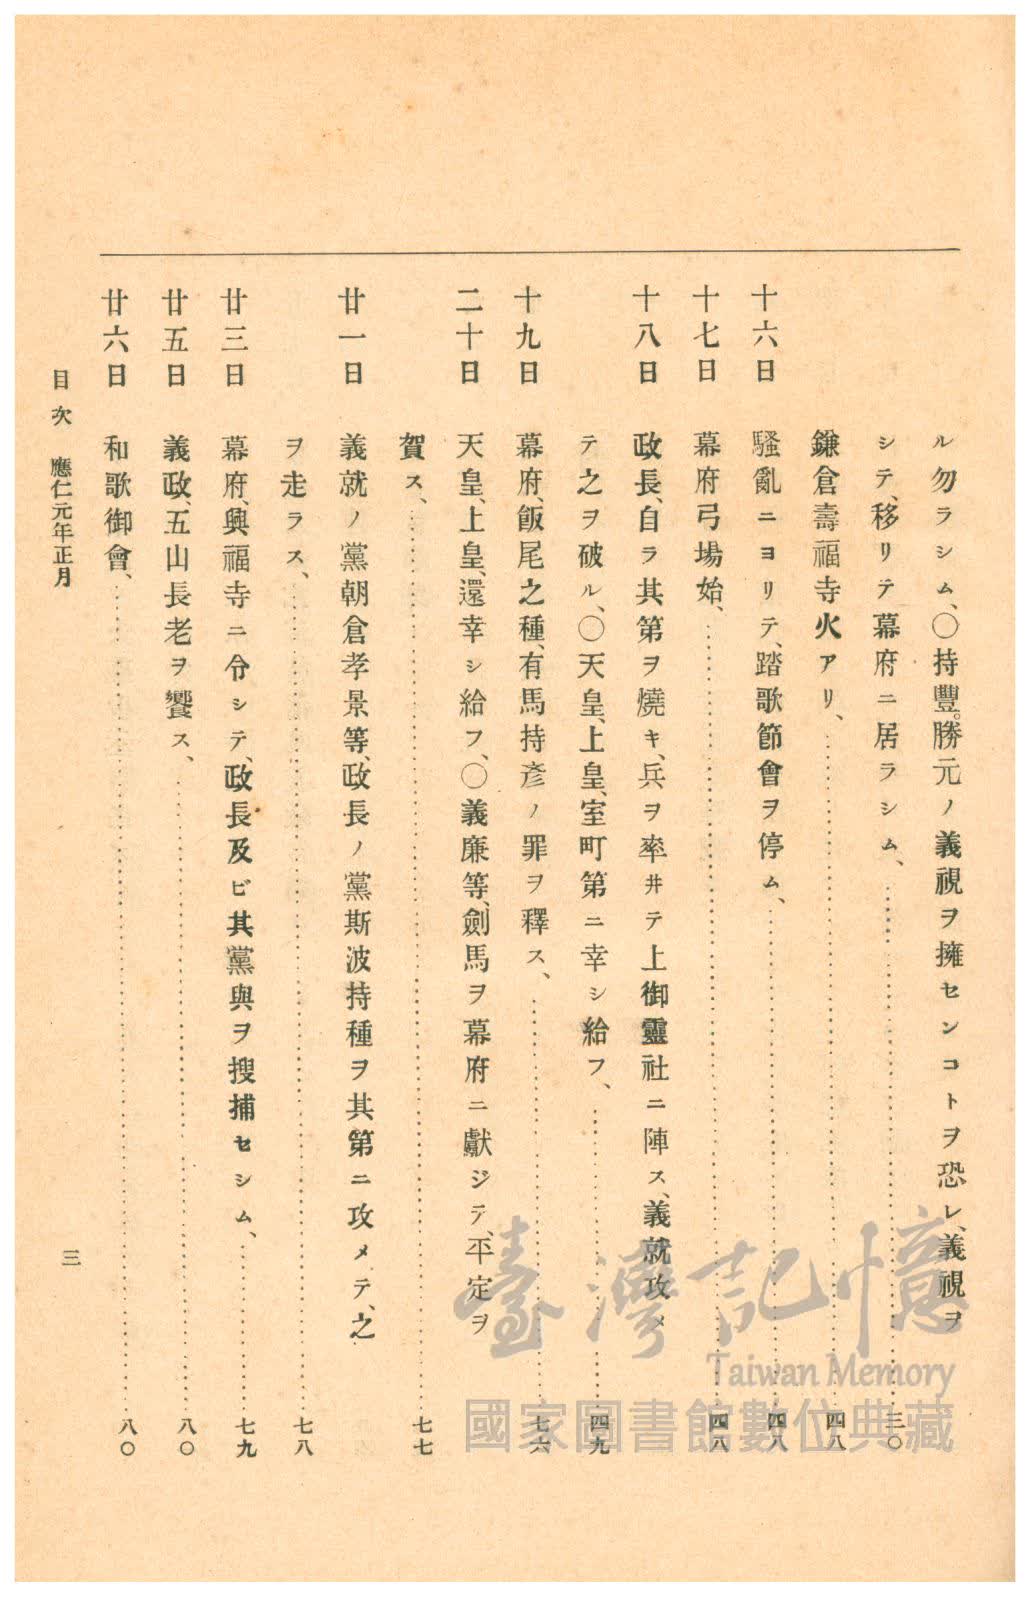 ル勿ラシム、〇持豐。勝元ノ義視ヲ擁センコトヲ恐レ、義視ヲ
シテ、移リテ幕府ニ居ラシム、……三〇
鎌倉壽福寺火アリ、……四八
十六日 騷亂ニヨリテ、踏歌節會ヲ停ム、……四八
十七日 幕府弓場始、……四八
十八日 政長、自ラ其第ヲ燒キ、兵ヲ率井テ上御靈社ニ陣ス、義就攻メ
テ之ヲ破ル、〇天皇、上皇、室町第ニ幸シ給フ、……四九
十九日 幕府、飯尾之種、有馬持彥ノ罪ヲ釋ス、……七六
二十日 天皇、上皇、還幸シ給フ、〇義廉等、劍馬ヲ幕府ニ獻ジテ、平定ヲ
賀ス、……七七
廿一日 義就ノ黨朝倉孝景等、政長ノ黨斯波持種ヲ其第ニ攻メテ、之
ヲ走ラス、……七八
廿三日 幕府、興福寺ニ令シテ、政長及ビ其黨與ヲ搜捕セシム、……七九
廿五日 義政、五山長老ヲ饗ス、……八〇
廿六日 和歌御會、……八〇
目次 應仁元年正月 三
臺灣記憶
Taiwan Memory
國家圖書館數位典藏